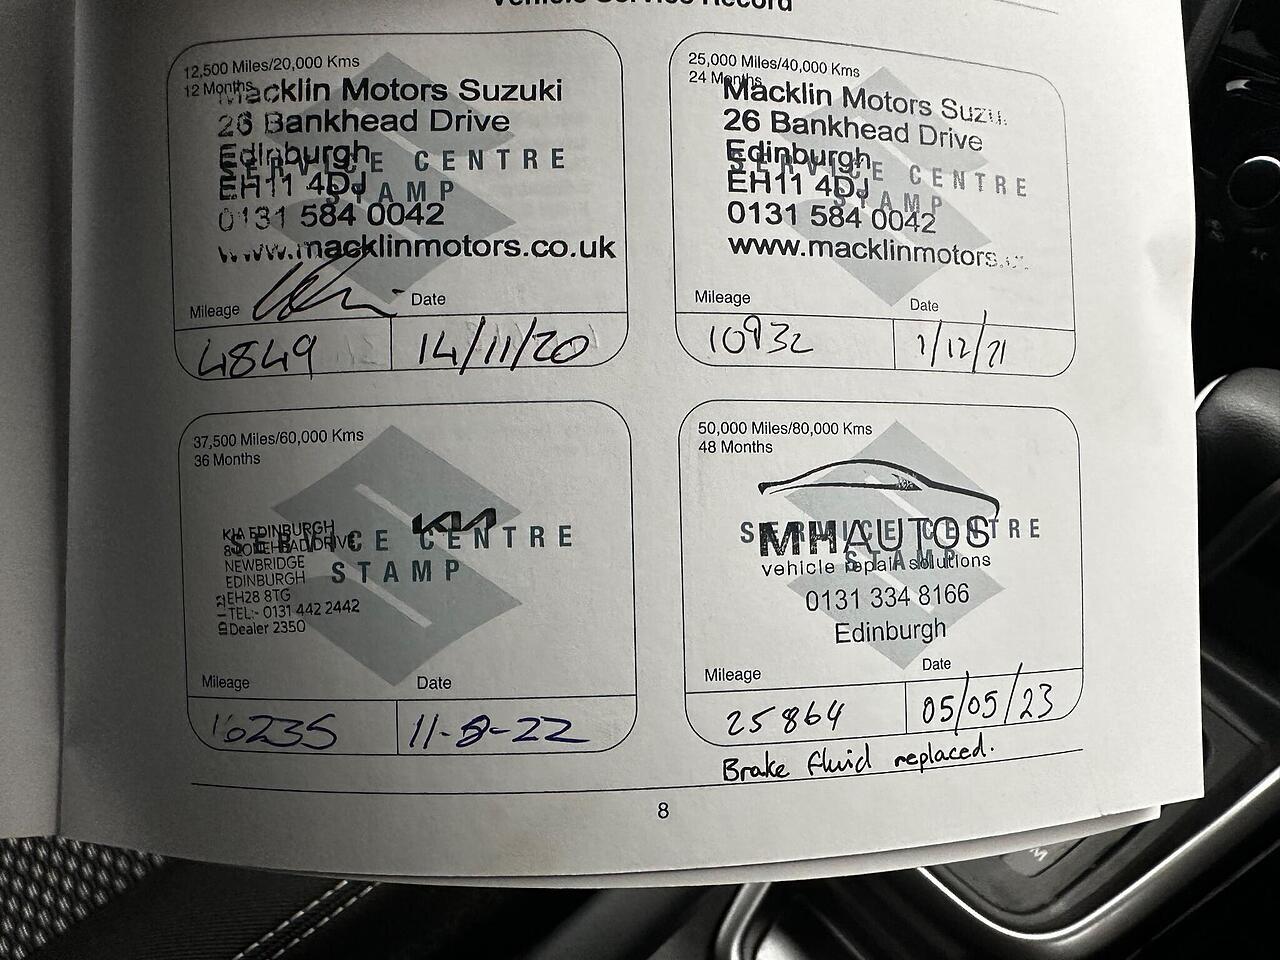 Vehicle Service Record
12,500 Miles/20,000 Kms
12 Months
Macklin Motors Suzuki
26 Bankhead Drive
Edinburgh
SERVICE CENTRE
EH11 4DJ
STAMP
0131 584 0042
www.macklinmotors.co.uk
Mileage
Date
4849
14/11/20
25,000 Miles/40,000 Kms
24 Months
Macklin Motors Suzu
26 Bankhead Drive
Edinburgh
SERVICE CENTRE
EH11 4DJ
STAMP
0131 584 0042
www.macklinmotors.
Mileage
Date
10932
1/12/21
37,500 Miles/60,000 Kms
36 Months
KIA
KIA EDINBURGH
SERVICE CENTRE
NEWBRIDGE
EDINBURGH
STAMP
EH28 8TG
TEL:- 0131 442 2442
Dealer 2350
Mileage
Date
16235
11-8-22
50,000 Miles/80,000 Kms
48 Months
SERVICE CENTRE
MHAUTOS
STAMP
vehicle repair solutions
0131 334 8166
Edinburgh
Mileage
Date
25864
05/05/23
Brake fluid replaced.
8